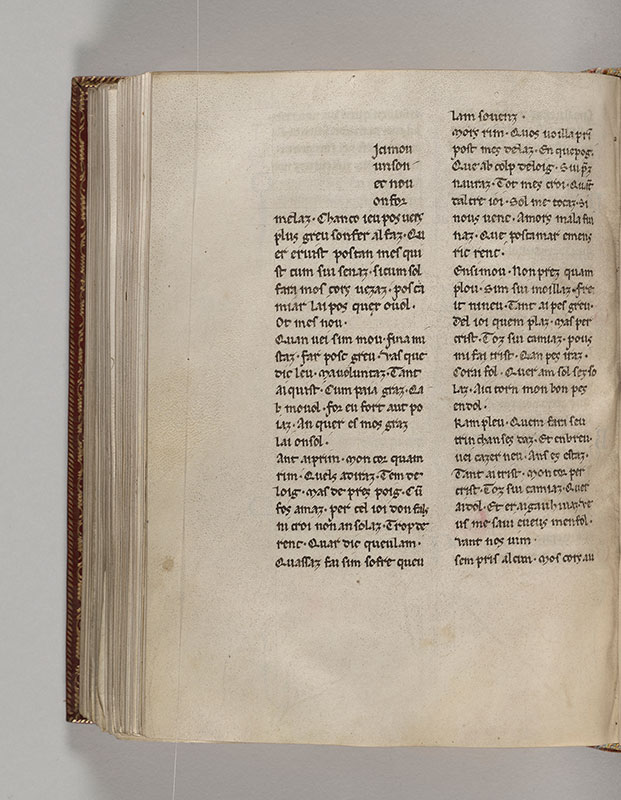 Jcimou
un son
et nou
on for
melaz · Chanto ieu pos veis
plus greu sonfer al faz · Qu
er eruist postan mes qui
st cum sui senaz · sicum sol
fara mos cors vezaz · pos ca
miar lai pos quer ouol ·
Ot mes nou ·
Quan uei sim mou · fina mi
staz · far post greu · vas que
dic leu · Mauoluntaz · Tant
ai quist · Cum paia graz · Ea
b mouol · for eu fort aut po
iaz · An quer es mos graz
Lai on sol ·
Ant aiprim · mon cor quam
rim · Quels adiraz · Tem de
loig · mas de prez poig · Cũ
fes amaz · per cel ioi don fals
ni croi non an solaz · Trop de
renc · Quar dic queu lam ·
Quassaz fai sim sofre queu
Lam souenz ·
Mois rim · Quos uoilla pri
post mes delaz · En quepog
Que ab colp deloig · Sui prz
nauraz · Tot mes croi · Quar
tal tre ioi · Sol me tocaz · Si
nous uenc · Amors mala fui
naz · Que poscamar emeus
ric renc ·
Ensimou · Non prez quam
plou · Sim sui moillaz · fre
it nineu · Tant ai pes greu ·
Del ioi quem plaz · mas per
crist · Toz sui camiaz · pous
mi fai trist · Qan pes iraz ·
Corai fol · Quer am sol ses so
laz · Aici torn mon bon pes
en dol ·
Ram pleu · Quem fara seu
trin chan ses daz · Et en breu
uei cazer neu · Ans es estaz ·
Tant ai trist · Mon cor per
crist · Toz sui camiaz · Quer
ai dol · Et eraigauh
us me saui eueus menfol ·
vant nos uim ·
sem pris alcun · Mos cors au